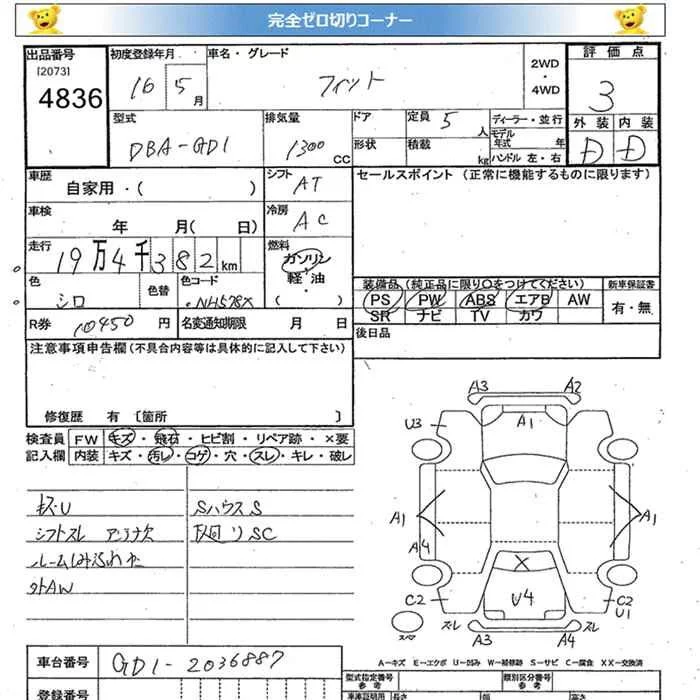 完全ゼロ切りコーナー
出品番号 [2073] 4836
初度登録年月 16 5月
車名・グレード フィット
2WD・4WD
評価点 3
外装 D 内装 D
型式 DBA-GD1
排気量 1300 CC
ドア 形状
定員 5 人
積載 kg
ディーラー・並行
モデル年式 年
ハンドル 左・右
車歴 自家用・( )
シフト AT
セールスポイント (正常に機能するものに限ります)
車検 年 月( 日)
冷房 AC
走行 19万4千382km
燃料 ガソリン・軽油 ( )
色 シロ 色替 色コード NH578X
装備品(純正品に限り○をつけてください) 新車保証書
PS PW ABS エアB AW 有・無
SR ナビ TV カワ
R券 10450 円 名変通知期限 月 日
後日品
注意事項申告欄(不具合内容等は具体的に記入して下さい)
修復歴 有 [箇所 ]
検査員記入欄 FW キズ・飛石・ヒビ割・リペア跡・×要
内装 キズ・汚レ・コゲ・穴・スレ・キレ・破レ
キズ・U SハウスS
シフトスレ アンテナ欠 SC
外AW
A3 A2
U3 A1
A1 A1
A4
C2 U4 C2 U1
スペア スレ A3 A4 スレ
A-キズ E-エクボ U-凹み W-補修跡 S-サビ C-腐食 XX-交換済
車台番号 GD1-2036887
型式指定番号 参考 類別区分番号 参考
登録番号
車庫証明用 長さ 幅 高さ